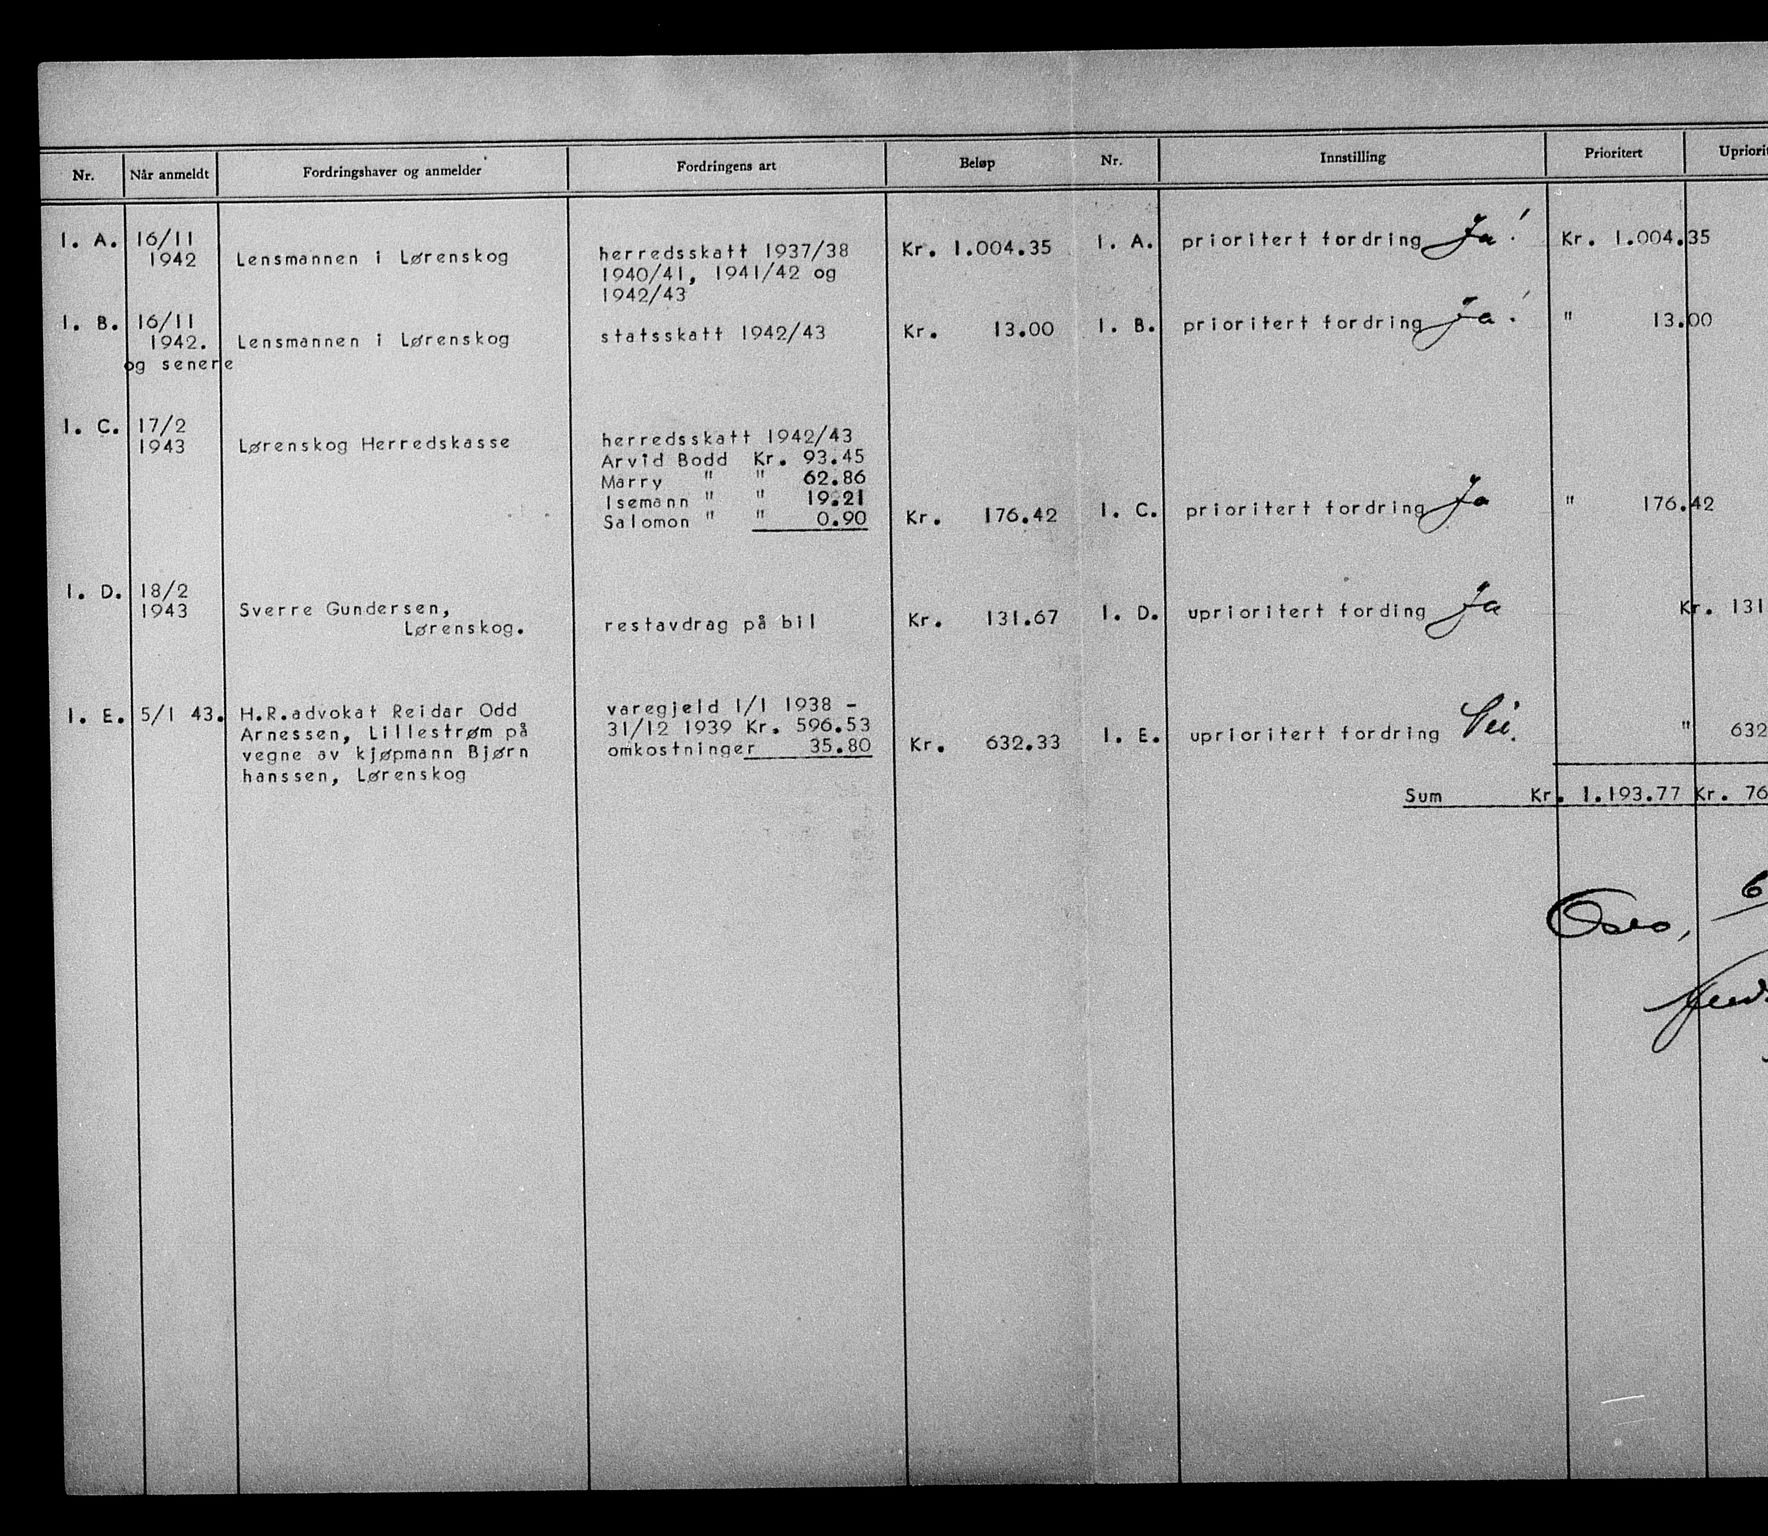 Nr. Når anmeldt Fordringshaver og anmelder Fordringens art Beløp Nr. Innstilling Prioritert Upriorit
1. A. 16/11 1942 Lensmannen i Lørenskog herredsskatt 1937/38 Kr. 1.004.35 1. A. prioritert fordring Ja! Kr. 1.004.35
1940/41, 1941/42 og
1942/43
1. B. 16/11 1942. Lensmannen i Lørenskog statsskatt 1942/43 Kr. 13.00 1. B. prioritert fordring Ja! " 13.00
og senere
1. C. 17/2 1943 Lørenskog Herredskasse herredsskatt 1942/43
Arvid Bodd Kr. 93.45
Marry " " 62.86
Isemann " " 19.21
Salomon " " 0.90 Kr. 176.42 1. C. prioritert fordring Ja " 176.42
1. D. 18/2
1943 Sverre Gundersen,
Lørenskog. restavdrag på bil Kr. 131.67 1. D. uprioritert fording Ja Kr. 131
1. E. 5/1 43. H.R.advokat Reidar Odd varegjeld 1/1 1938 -
Arnessen, Lillestrøm på 31/12 1939 Kr. 596.53
vegne av kjøpmann Bjørn omkostninger 35.80 Kr. 632.33 1. E. uprioritert fordring Nei. " 632
hanssen, Lørenskog
Sum Kr. 1.193.77 Kr. 76
Oslo, 6